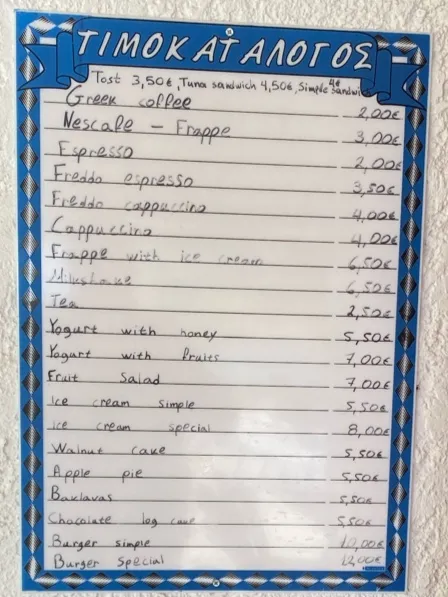 ΤΙΜΟΚΑΤΑΛΟΓΟΣ
Tost 3,50€, Tuna sandwich 4,50€, Simple Sandwich 4€
Greek coffee 2,00€
Nescafe - Frappe 3,00€
Espresso 2,00€
Freddo espresso 3,50€
Freddo cappuccino 4,00€
Cappuccino 4,00€
Frappe with ice cream 6,50€
Milkshake 6,50€
Tea 2,50€
Yogurt with honey 5,50€
Yogurt with fruits 7,00€
Fruit Salad 7,00€
Ice cream simple 5,50€
ice cream special 8,00€
Walnut cake 5,50€
Apple pie 5,50€
Baklavas 5,50€
Chocolate log cake 5,50€
Burger simple 10,00€
Burger Special 12,00€